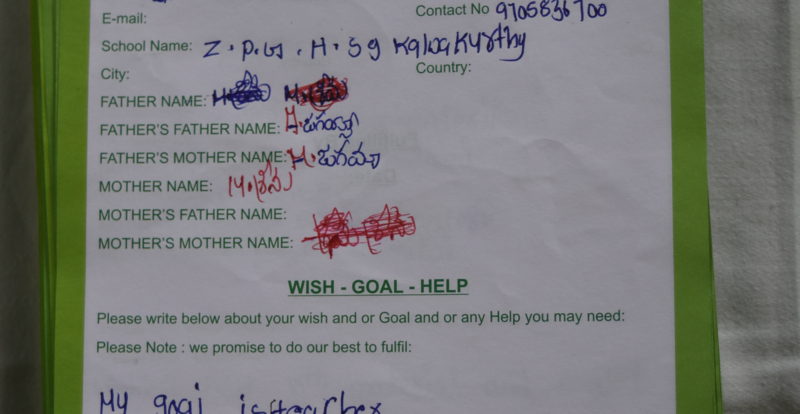 E-mail:
Contact No 9705836700
School Name: Z.P.G.H.S g Kalwakurthy
City:
Country:
FATHER NAME:
FATHER'S FATHER NAME:
FATHER'S MOTHER NAME: M.
MOTHER NAME: M.
MOTHER'S FATHER NAME:
MOTHER'S MOTHER NAME:
WISH - GOAL - HELP
Please write below about your wish and or Goal and or any Help you may need:
Please Note : we promise to do our best to fulfil:
My goal is